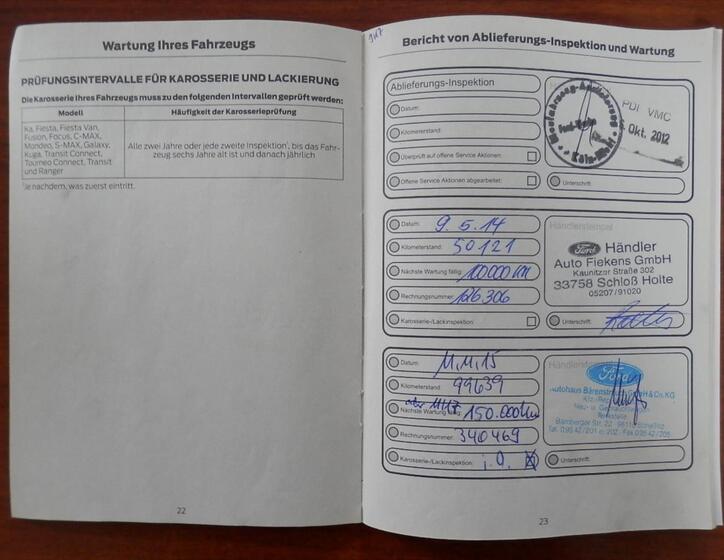 Wartung Ihres Fahrzeugs
PRÜFUNGSINTERVALLE FÜR KAROSSERIE UND LACKIERUNG
Die Karosserie Ihres Fahrzeugs muss zu den folgenden Intervallen geprüft werden:
Modell
Häufigkeit der Karosserieprüfung
Ka, Fiesta, Fiesta Van,
Fusion, Focus, C-MAX,
Mondeo, S-MAX, Galaxy,
Kuga, Transit Connect,
Tourneo Connect, Transit
und Ranger
Alle zwei Jahre oder jede zweite Inspektion¹, bis das Fahr-
zeug sechs Jahre alt ist und danach jährlich
¹Je nachdem, was zuerst eintritt.
22
Bericht von Ablieferungs-Inspektion und Wartung
Ablieferungs-Inspektion
Datum:
Kilometerstand:
Überprüft auf offene Service Aktionen:
Offene Service Aktionen abgearbeitet:
PDI VMC
Okt. 2012
Köln-Niehl
Unterschrift:
Datum: 9.5.14
Kilometerstand: 50121
Nächste Wartung fällig: 100000 km
Rechnungsnummer: 126306
Karosserie-/Lackinspektion:
Händlerstempel
Ford Händler
Auto Fiekens GmbH
Kaunitzer Straße 302
33758 Schloß Holte
05207/91020
Unterschrift:
Datum: 11.11.15
Kilometerstand: 99639
oder 11/17
Nächste Wartung fällig: 150.000 km
Rechnungsnummer: 340469
Karosserie-/Lackinspektion: i.O. X
Händlerstempel
Ford
Autohaus Bärenstrauch GmbH & Co. KG
Neu- u. Gebrauchtwagen
Bamberger Str. 22
Unterschrift:
23